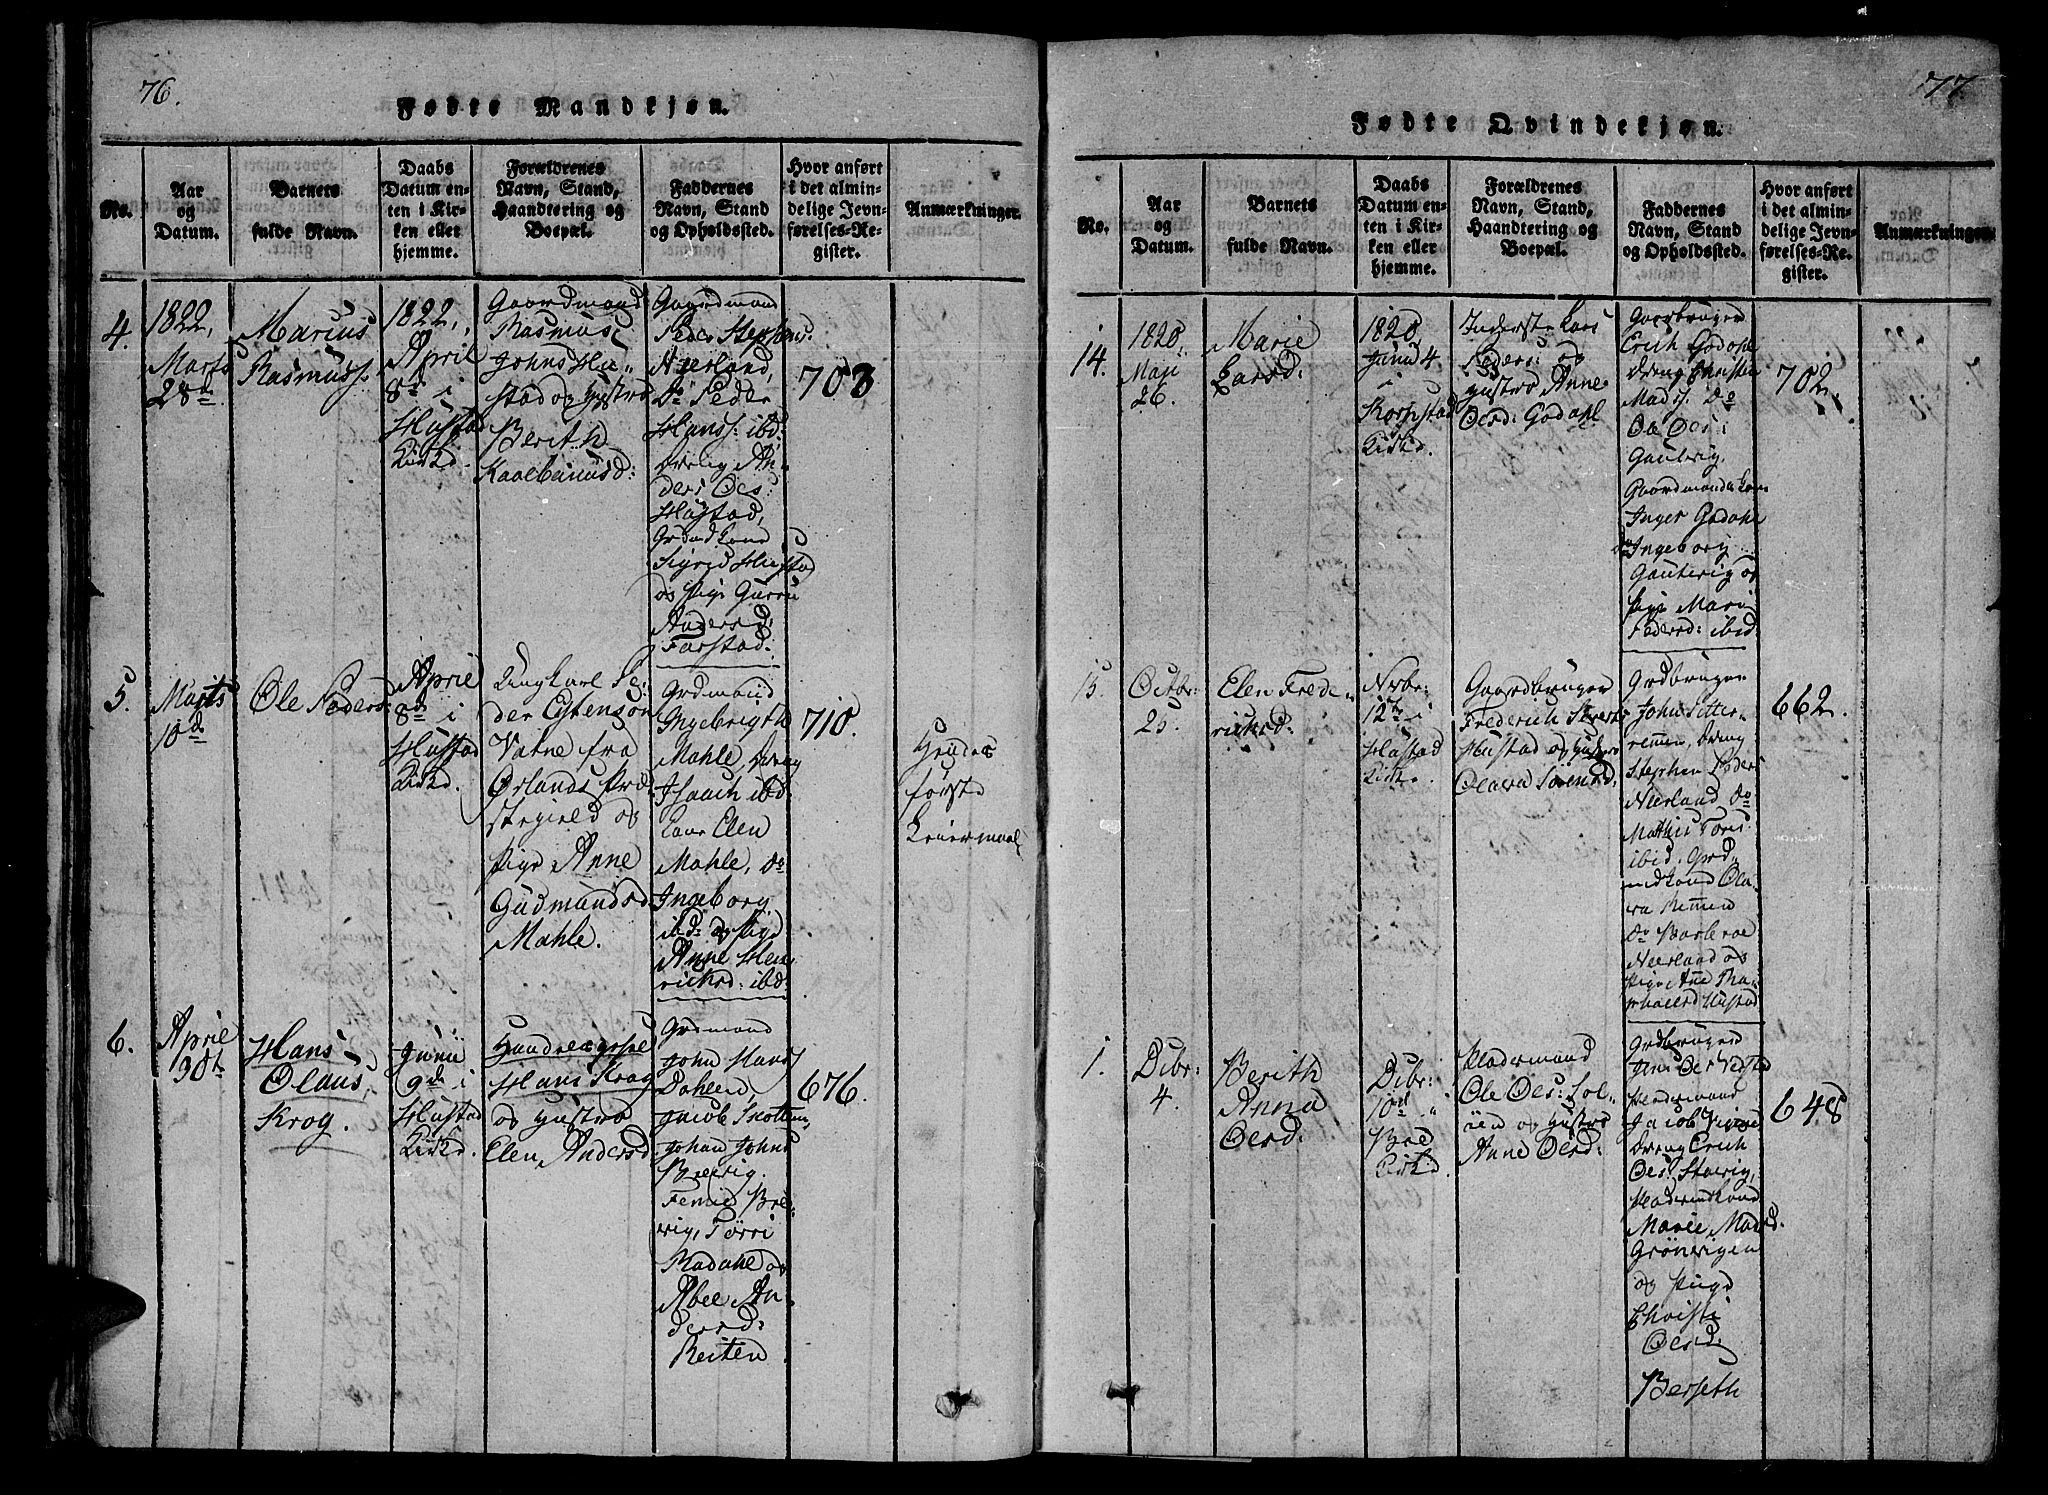 76.
Fødte Mandkjøn.
No.
Aar
og
Datum.
Barnets
fulde Navn.
Daabs
Datum en-
ten i Kir-
ken eller
hjemme.
Forældrenes
Navn, Stand,
Haandtering og
Boepæl.
Faddernes
Navn, Stand
og Opholdssted.
Hvor anført
i det almin-
delige Jevn-
førelses-Re-
gister.
Anmærkninger.
4.
1822,
Marts
28de
Marius
Rasmuss.
1822,
April
8de i
Hustad
Kirke.
Gaardmand
Rasmus
Johns: Hu-
stad og Hustroe
Berith
Gaardmand
Peder Stephens.
Nerland,
Do Peder
Hanss: ibd:
Dreng An-
ders Oles:
Hustad,
Grdmdkone
Sigrid Hustad
og Pige Gurru
Andersd:
Farstad.
703
5.
Marts
10de
Ole Peders:
April
8de i
Hustad
Kirke.
Ungkarl Pe-
der Eytensøn
Vatne fra
Ørlands Præ-
stegield og
Pige Anne
Gudmundsd
Mahle.
Grdmand
Ingebrigth
Mahle, Dreng
Isaach ibd:
Kone Elen
Mahle, do
Ingeborg
ibd: og Pige
Anne Hen-
richsd: ibd:
710.
Hendes
første
Leiermaal.
6.
April
30te
Hans
Olaus,
Krog.
Junii
9de i
Hustad
Kirke.
Handelsgsvel
Hans Krog
og Hustroe
Elen Andersd
Grdmand
John Hans
Dahlen,
Jacob
Johan Johns
Brevig.
Brevig, Tørri
Radahl og
Abel An-
dersd:
Reiten
676.
77
Fødte Qvindekjøn.
No.
Aar
og
Datum.
Barnets
fulde Navn.
Daabs
Datum en-
ten i Kir-
ken eller
hjemme.
Forældrenes
Navn, Stand,
Haandtering og
Boepæl.
Faddernes
Navn, Stand
og Opholdssted.
Hvor anført
i det almin-
delige Jevn-
førelses-Re-
gister.
Anmærkninger.
14.
1820.
Maji
26.
Marie
Larsd:
1820
Junii 4
i
Kornstad
Kirke.
Inderste Lars
Peders: og
Hustro Anne
Olesd: Godahl
Erich Godahl
Dreng Christen
Mads: do
Ole Oles:
Gautvig,
Gaardmandskone
Inger Godahl
do Ingeborg
Gautvig og
Pige Marie
Pedersd: ibid.
702.
15.
Octbr:
25.
Elen Frede-
richsd:
Nvbr:
12te i
Hustad
Kirke.
Gaardbruger
Frederich
Hustad og Hustroe
Olava Sørensd:
Grdbruger
John Setter-
remen, Dreng
Stephen Peders
Nerland do
Mathis
ibid. Grd-
mdkone Ola-
va Remen
do
Nerland og
Pige Ane Ra-
phaelsd Hustad
662.
1.
Dcbr:
4.
Berith
Anna
Olesd.
Dcbr:
10de i
Boe
Kirke
Ole Oles: Sol-
øen og Hustro
Anne Olesd:
Grdbruger
Jens Oles
Jacob
Dreng Erich
Oles: Stavig,
Marie Madsd.
Grønvigen
og Pige
Christi
Olesd.
Berseth
648